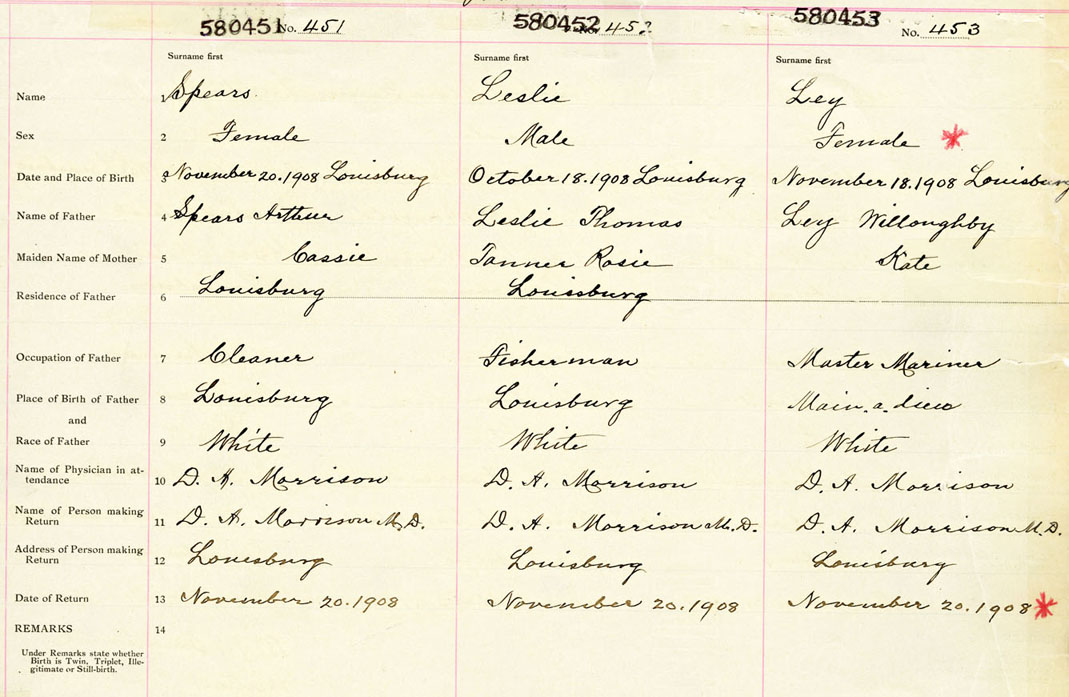 580451 No. 451 580452 No. 452 580453 No. 453
Surname first Surname first Surname first
Name 1 Spears Leslie Ley
Sex 2 Female Male Female *
Date and Place of Birth 3 November 20.1908 Louisburg October 18.1908 Louisburg November 18.1908 Louisburg
Name of Father 4 Spears Arthur Leslie Thomas Ley Willoughby
Maiden Name of Mother 5 Cassie Tanner Rosie Kate
Residence of Father 6 Louisburg Louissburg
Occupation of Father 7 Cleaner Fisherman Master Mariner
Place of Birth of Father 8 Louisburg Louisburg Main. a. dieu
and
Race of Father 9 White White White
Name of Physician in at-
tendance 10 D. A. Morrison D. A. Morrison D. A. Morrison
Name of Person making
Return 11 D. A. Morrison M.D. D. A. Morrison M.D. D. A. Morrison M.D.
Address of Person making
Return 12 Louisburg Louisburg Louisburg
Date of Return 13 November 20.1908 November 20.1908 November 20.1908 *
REMARKS 14
Under Remarks state whether
Birth is Twin, Triplet, Ille-
gitimate or Still-birth.